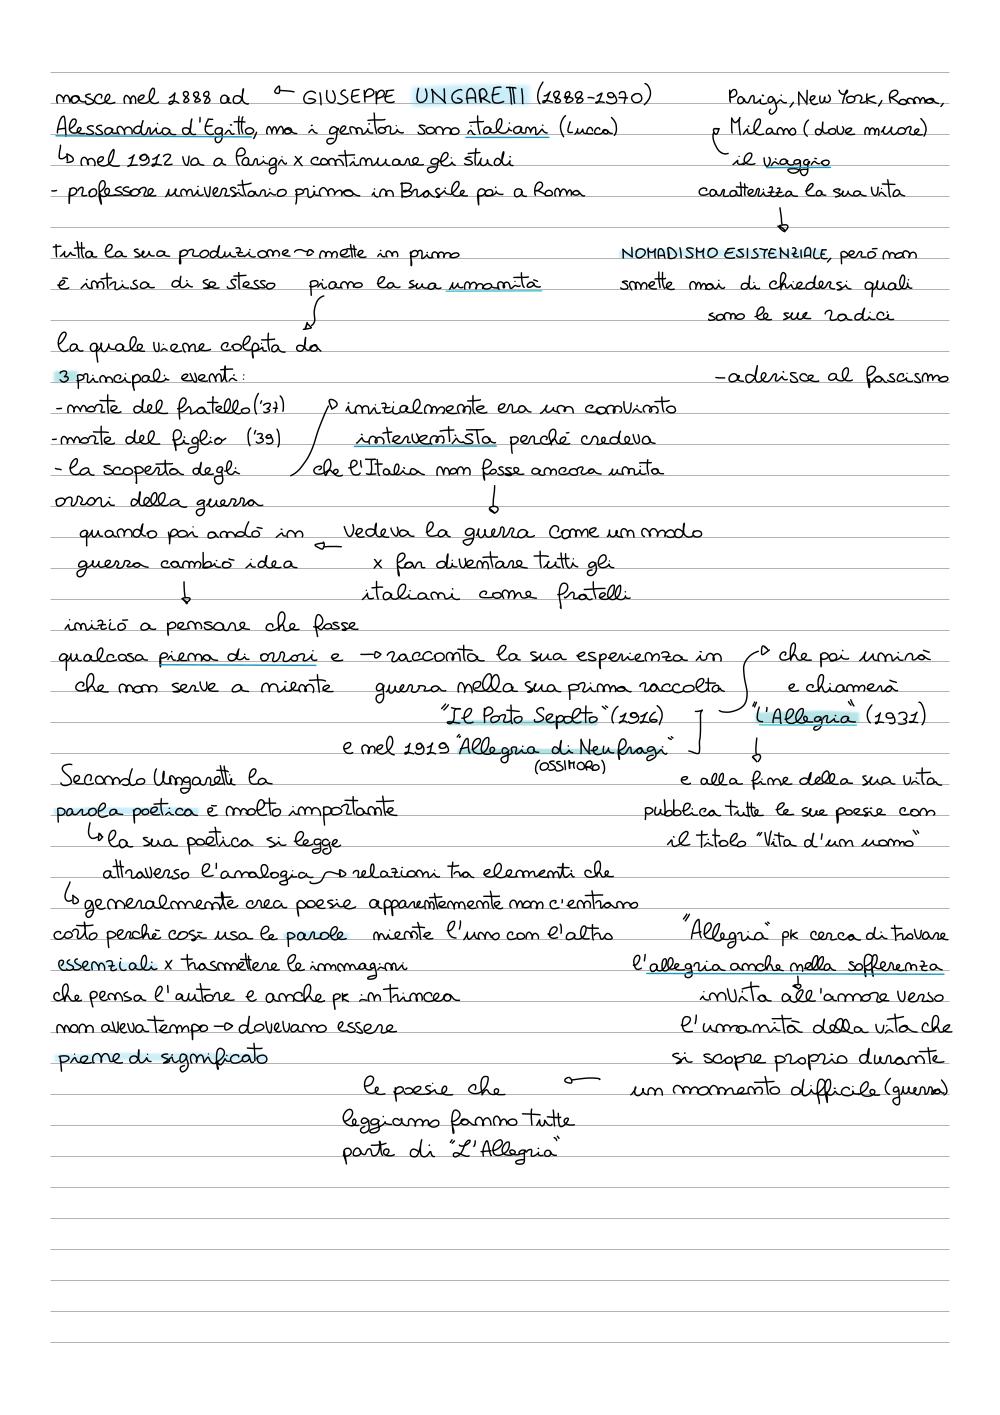 nasce nel 1888 ad ← GIUSEPPE UNGARETTI (1888-1970)
Alessandria d'Egitto, ma i genitori sono italiani (Lucca)
↳ nel 1912 va a Parigi x continuare gli studi
- professore universitario prima in Brasile poi a Roma
Parigi, New York, Roma,
Milano (dove muore)
il viaggio
caratterizza la sua vita
↓
NOMADISMO ESISTENZIALE, però non
smette mai di chiedersi quali
sono le sue radici
-aderisce al fascismo
tutta la sua produzione → mette in primo
è intrisa di se stesso piano la sua umanità
la quale viene colpita da
3 principali eventi:
- morte del fratello ('37)
- morte del figlio ('39)
- la scoperta degli
orrori della guerra
inizialmente era un convinto
interventista perché credeva
che l'Italia non fosse ancora unita
↓
vedeva la guerra come un modo
x far diventare tutti gli
italiani come fratelli
←
quando poi andò in
guerra cambiò idea
↓
iniziò a pensare che fosse
qualcosa piena di orrori e
che non serve a niente
→ racconta la sua esperienza in
guerra nella sua prima raccolta
"Il Porto Sepolto" (1916)
e nel 1919 "Allegria di Neufragi"
(OSSIMORO)
che poi unirà
e chiamerà
"L'Allegria" (1931)
↓
e alla fine della sua vita
pubblica tutte le sue poesie con
il titolo "Vita d'un uomo"
Secondo Ungaretti la
parola poetica è molto importante
↳ la sua poetica si legge
attraverso l'analogia → relazioni tra elementi che
apparentemente non c'entrano
niente l'uno con l'altro
↳ generalmente crea poesie
corto perché così usa le parole
essenziali x trasmettere le immagini
che pensa l'autore e anche pk in trincea
non aveva tempo → dovevano essere
piene di significato
"Allegria" pk cerca di trovare
l'allegria anche nella sofferenza
↓
invita all'amore verso
l'umanità della vita che
si scopre proprio durante
un momento difficile (guerra)
←
le poesie che
leggiamo fanno tutte
parte di "L'Allegria"